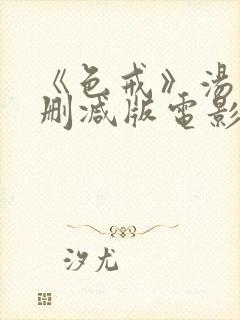 《色戒》湯
删减版電影
汐尤